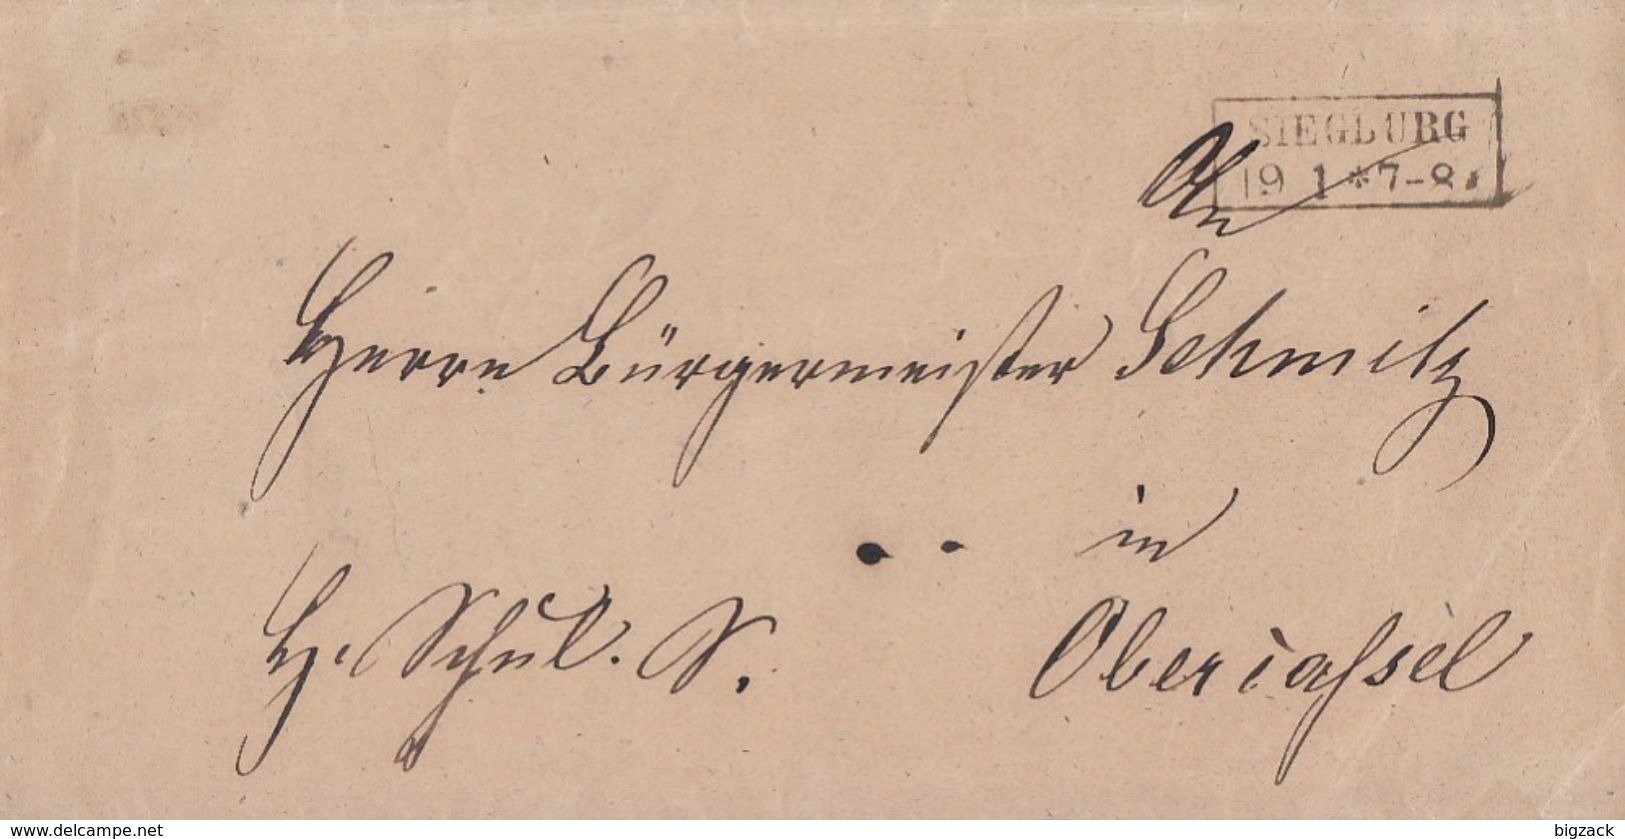 SIEGBURG
19 1 * 7-8
An
Herrn Bürgermeister Schmitz
in
H. Schul. S. Obercassel
www.delcampe.net bigzack